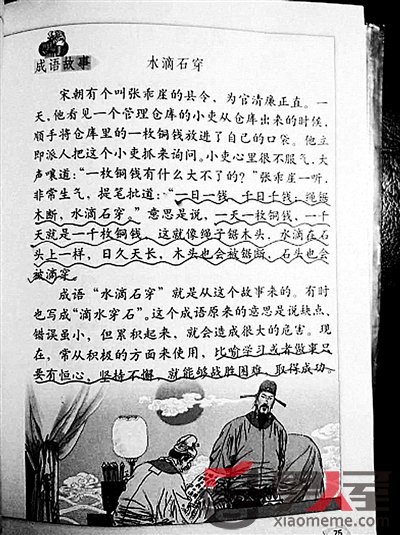 成语故事
水滴石穿
宋朝有个叫张乖崖的县令，为官清廉正直。一
天，他看见一个管理仓库的小吏从仓库出来的时候，
顺手将仓库里的一枚铜钱放进了自己的口袋。他立
即派人把这个小吏抓来询问。小吏心里很不服气，大
声嚷道：“一枚铜钱有什么大不了的？”张乖崖一听，
非常生气，提笔批道：“一日一钱，千日千钱，绳锯
木断，水滴石穿。”意思是说，一天一枚铜钱，一千
天就是一千枚铜钱，这就像绳子锯木头，水滴在石
头上一样，日久天长，木头也会被锯断，石头也会
被滴穿
成语“水滴石穿”就是从这个故事来的。有时
也写成“滴水穿石”。这个成语原来的意思是说缺点、
错误虽小，但累积起来，就会造成很大的危害。现
在，常从积极的方面来使用，比喻学习或者做事只
要有恒心，坚持不懈，就能够战胜困难，取得成功。
人屋
xiaomeme.com
75